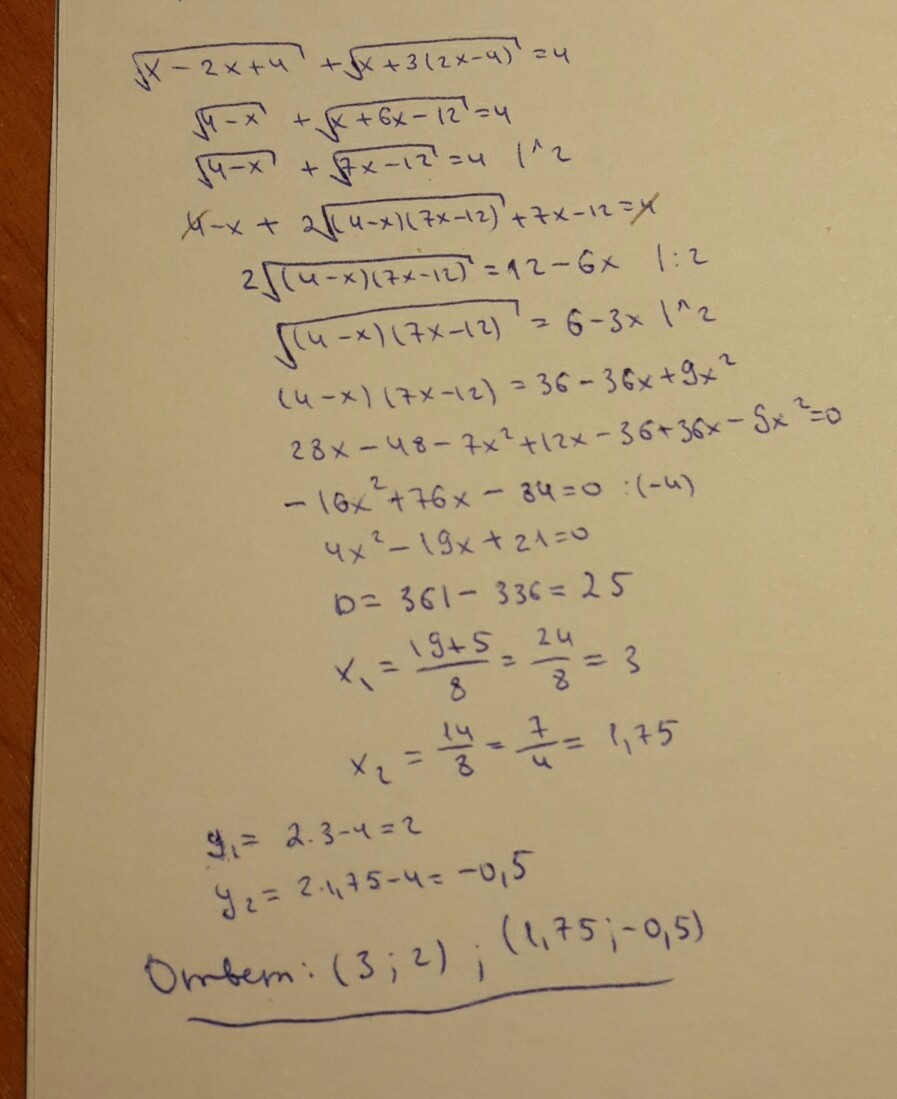 √(x-2x+4) + √(x+3(2x-4)) = 4
√(4-x) + √(x+6x-12) = 4
√(4-x) + √(7x-12) = 4 |^2
4-x + 2√((4-x)(7x-12)) + 7x-12 = 4
2√((4-x)(7x-12)) = 12-6x |:2
√((4-x)(7x-12)) = 6-3x |^2
(4-x)(7x-12) = 36-36x+9x²
28x-48-7x²+12x-36+36x-9x²=0
-16x²+76x-84=0 :(-4)
4x²-19x+21=0
D= 361-336=25
x₁ = (19+5)/8 = 24/8 = 3
x₂ = 14/8 = 7/4 = 1,75
y₁= 2·3-4=2
y₂= 2·1,75-4= -0,5
Ответ: (3;2) ; (1,75;-0,5)